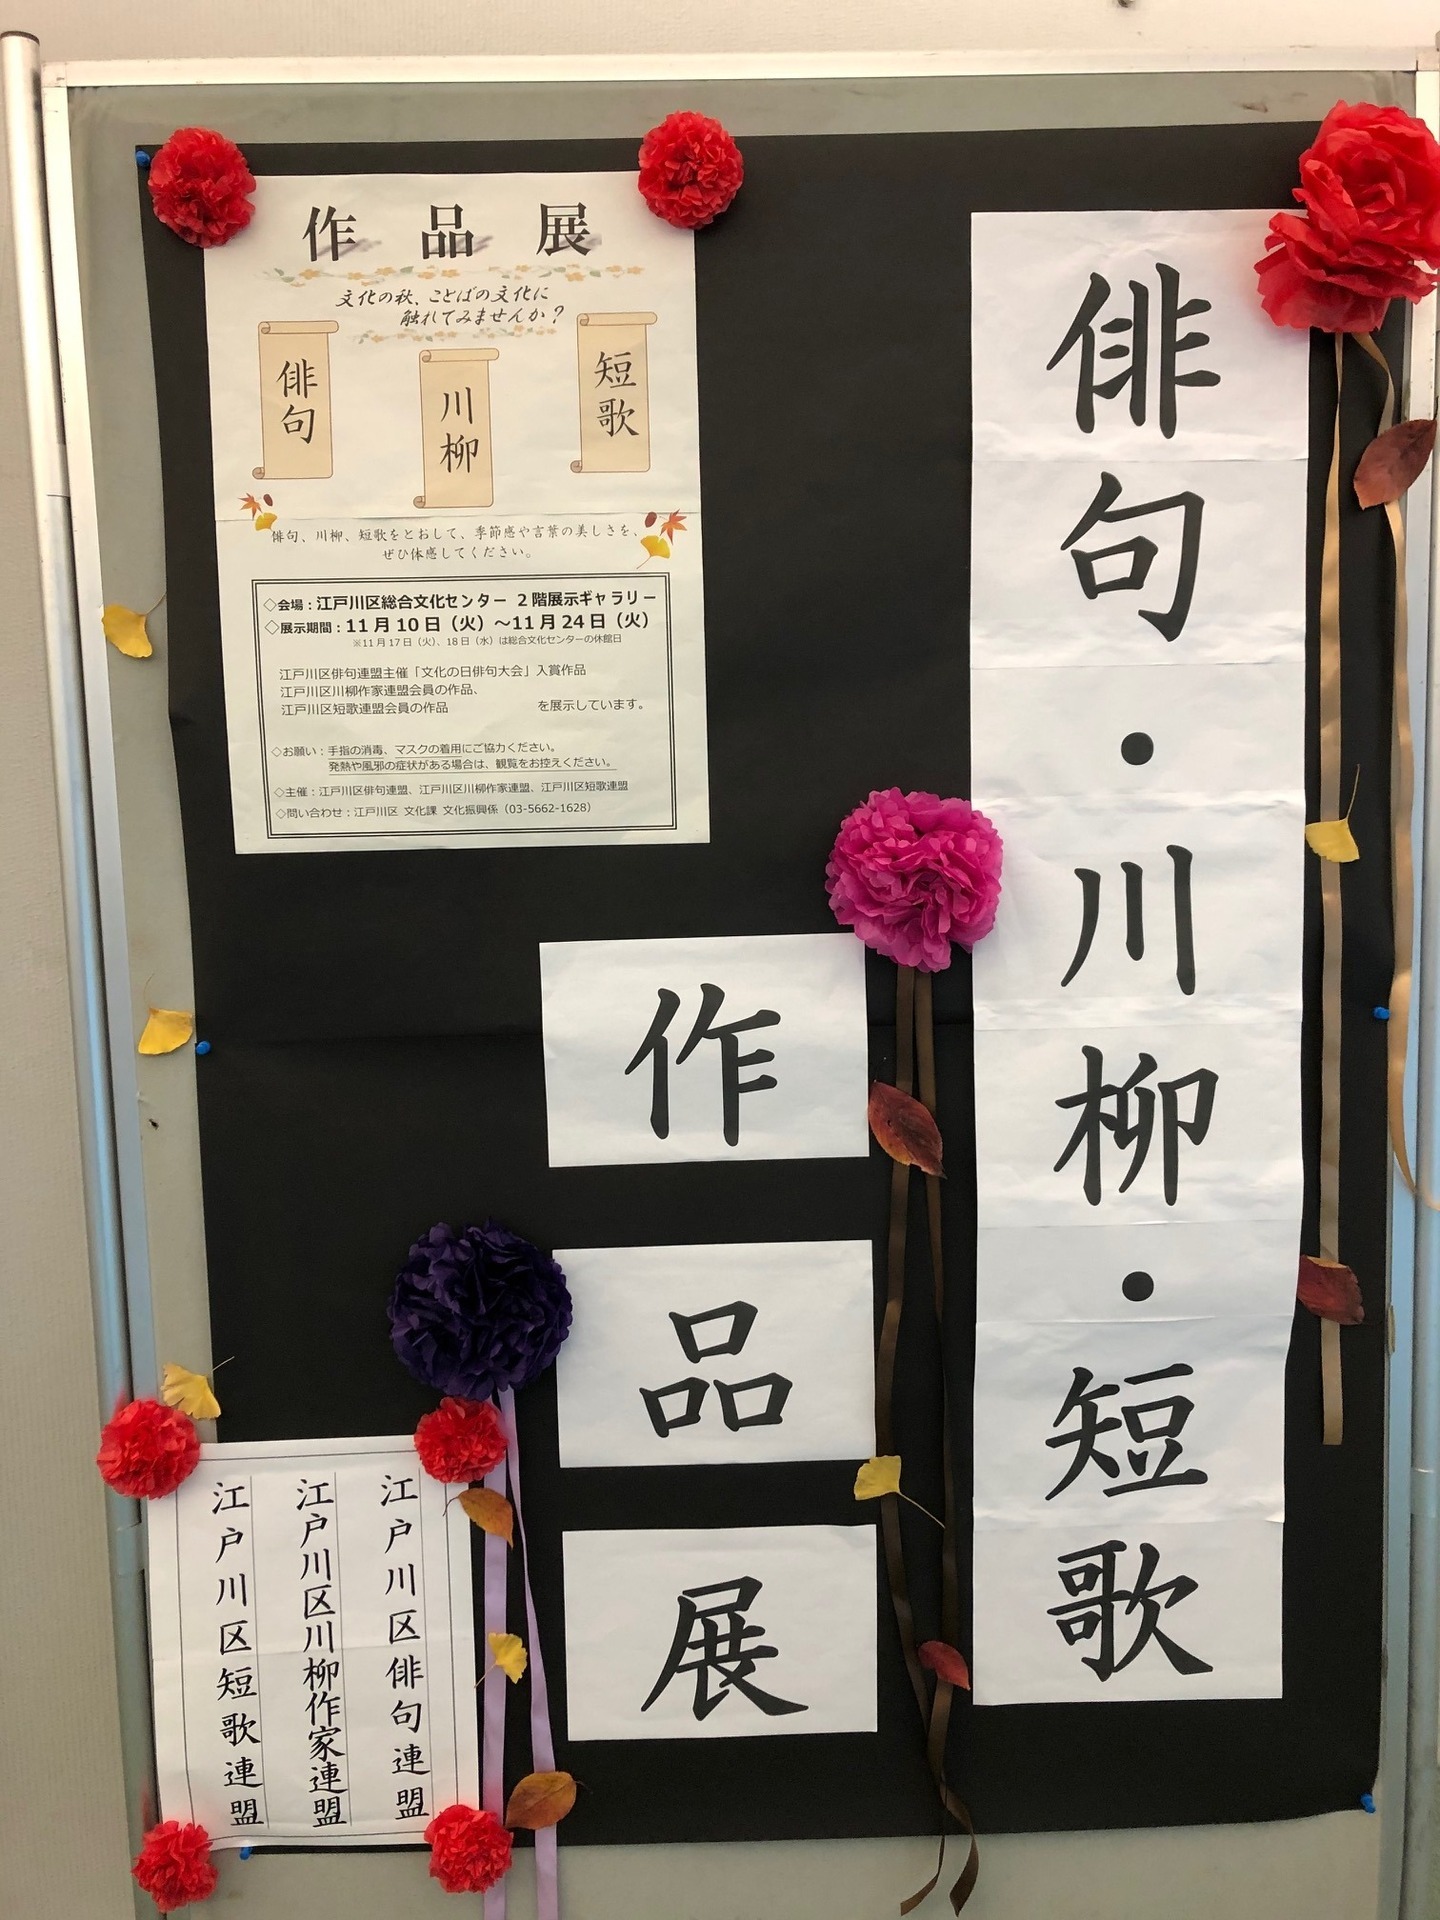 俳句・川柳・短歌
作品展
作品展
文化の秋、ことばの文化に
触れてみませんか?
俳句
川柳
短歌
俳句、川柳、短歌をとおして、季節感や言葉の美しさを、
ぜひ体感してください。
◇会場:江戸川区総合文化センター 2階展示ギャラリー
◇展示期間:11月10日(火)~11月24日(火)
※11月17日(火)、18日(水)は総合文化センターの休館日
江戸川区俳句連盟主催「文化の日俳句大会」入賞作品
江戸川区川柳作家連盟会員の作品、
江戸川区短歌連盟会員の作品 を展示しています。
◇お願い:手指の消毒、マスクの着用にご協力ください。
発熱や風邪の症状がある場合は、観覧をお控えください。
◇主催:江戸川区俳句連盟、江戸川区川柳作家連盟、江戸川区短歌連盟
◇問い合わせ:江戸川区 文化課 文化振興係(03-5662-1628)
江戸川区俳句連盟
江戸川区川柳作家連盟
江戸川区短歌連盟